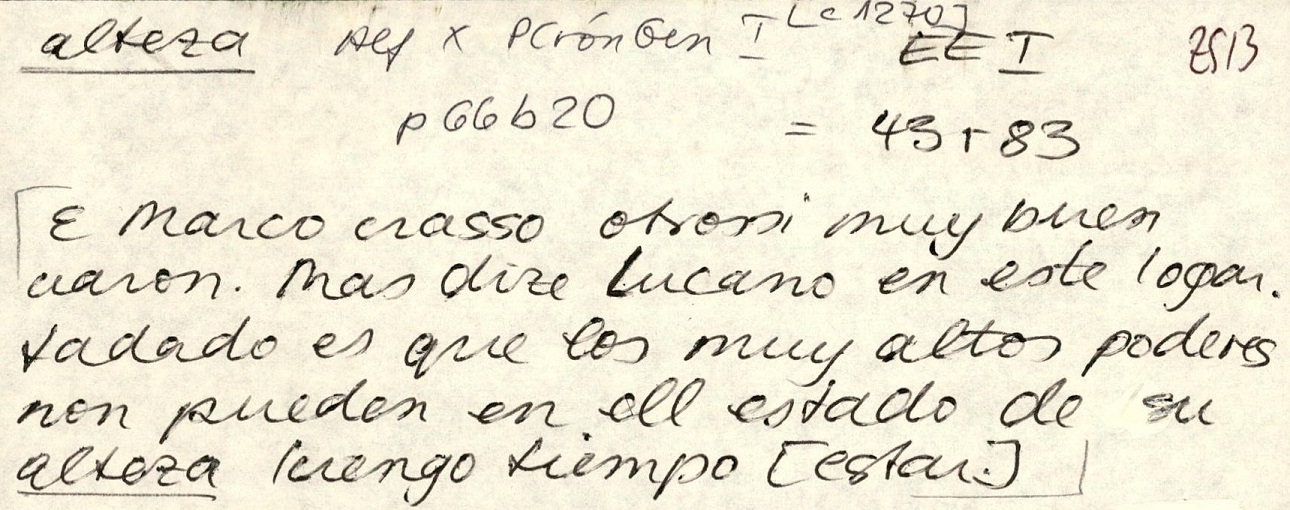 alteza Alf X PCrónGen I [c 1270] EE I 2513
p 66b20 = 43r 83
E Marco crasso otrossi muy buen
uaron. Mas dize Lucano en este logar.
dadado es que los muy altos poderes
non pueden en ell estado de su
alteza luengo tiempo [estar.]